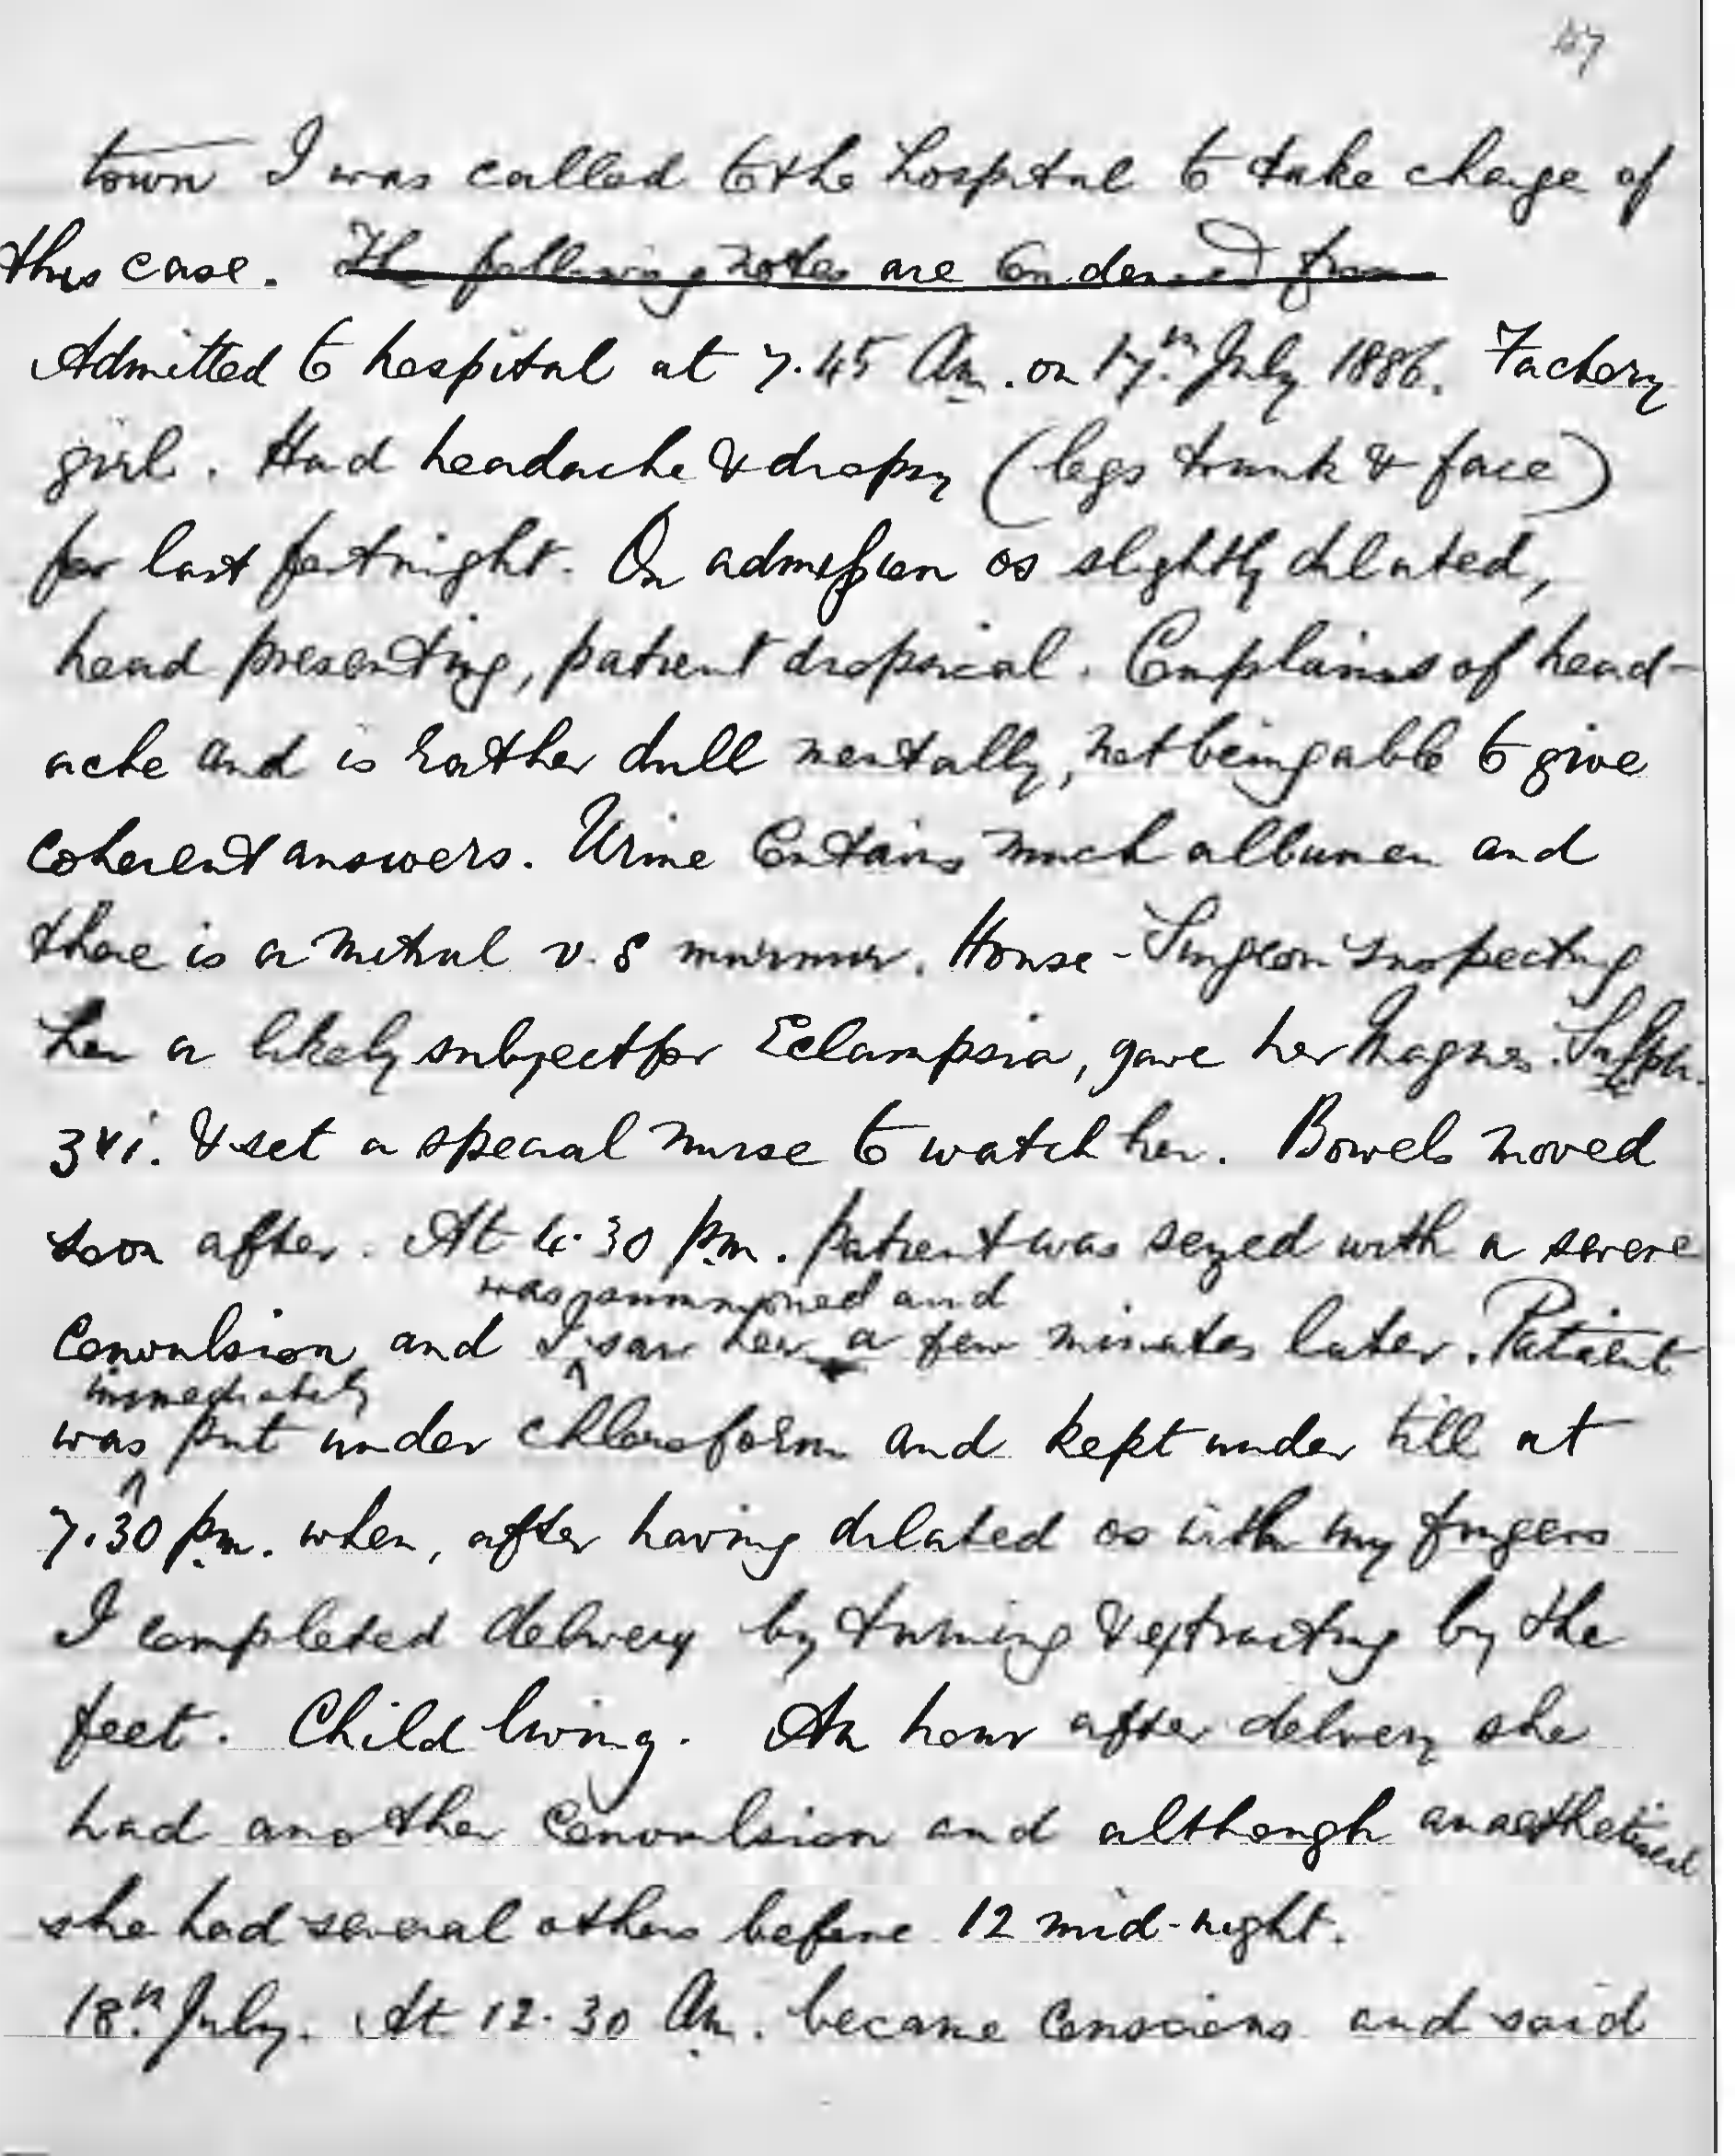 47
town I was called to the hospital to take charge of
this case. The following notes are condensed from
Admitted to hospital at 7.45 Am. on 17th July 1886. Factory
girl. Had headache & dropsy (legs trunk & face)
for last fortnight. On admission os slightly dilated,
head presenting, patient dropsical. Complains of head-
ache and is rather dull mentally, not being able to give
coherent answers. Urine contains much albumen and
there is a mitral v.s murmur. House-Surgeon suspecting
her a likely subject for Eclampsia, gave her Magnes. Sulph.
ʒvi. & set a special nurse to watch her. Bowels moved
soon after. At 4.30 pm. patient was seized with a severe
was summoned and
convulsion and I saw her a few minutes later. Patient
immediately
was put under chloroform and kept under till at
7.30 pm. when, after having dilated os with my fingers
I completed delivery by turning & extracting by the
feet. Child living. An hour after delivery she
had another convulsion and although anaesthetised
she had several others before 12 mid-night.
18th July. At 12.30 Am. became conscious and said